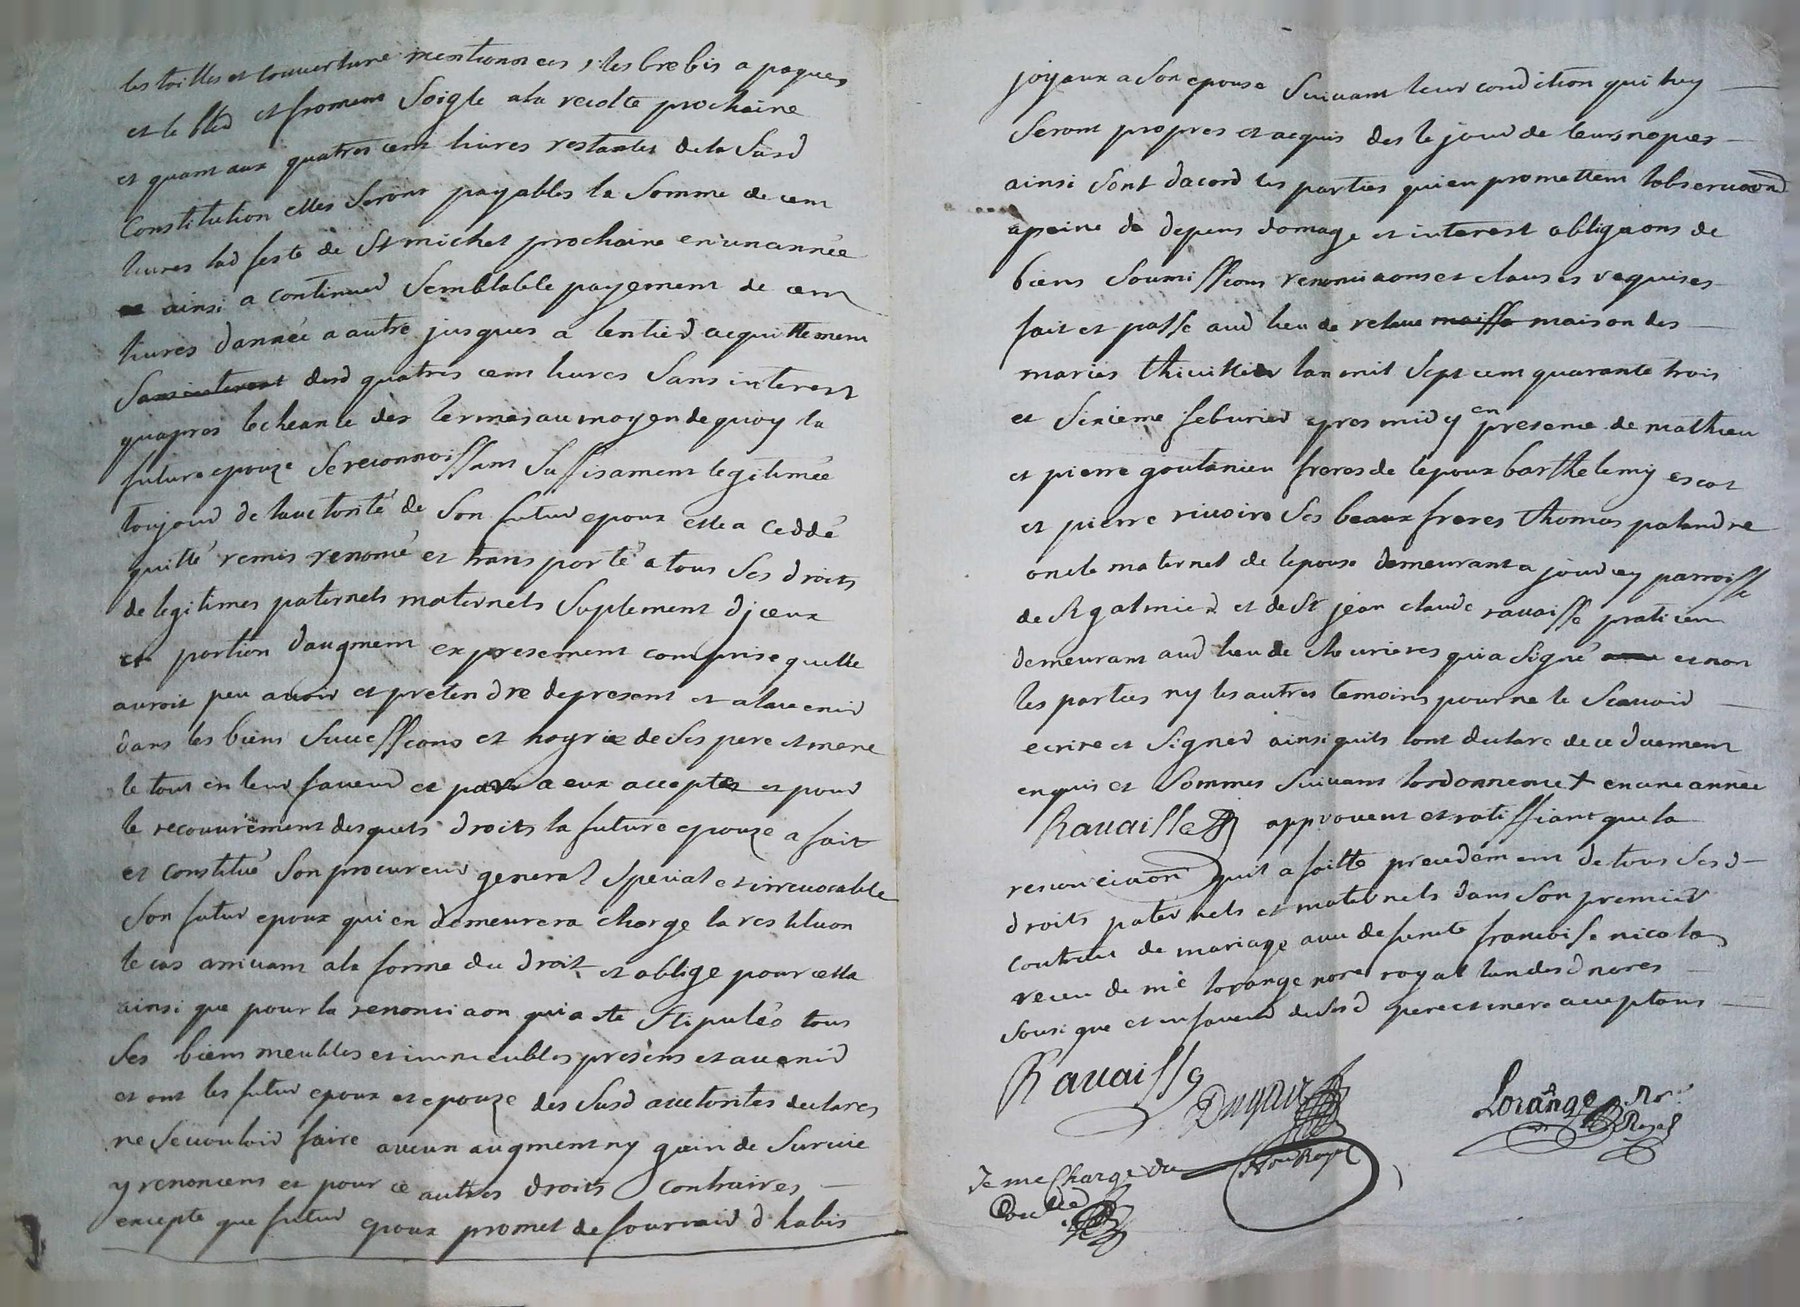 les toilles et couverture mentionnees, les brebis a paques
et le bled et froment Soigle a la recolte prochaine
et quant aux quatres cent livres restantes de la Susd
Constitution elles Seront payables la Somme de cent
livres lad feste de St michel prochaine en un année
et ainsi a continuer Semblable payement de cent
livres dannée a autre jusques a lentier acquittement
Sans interest desd quatres cent livres Sans interest
quapres lecheante des termes au moyen de quoy la
future epouze Se reconnoissant Suffisament legitimée
toujour de lauctorité de Son futur epoux elle a Ceddé
quitté remis renoncé et transporté a tous Ses droits
de legitimes paternels maternels Suplement diceux
et portion daugment expresement comprise quelle
auroit peu avoir et pretendre de present et a lavenir
dans les biens Successions et hoyrie de Ses pere et mere
le tout en leur faveur et par a eux acceptes et pour
le recouvrement desquels droits la future epouze a fait
et constitué Son procureur general Special et irrevocable
Son futur epoux qui en demeurera charge la restituon
le cas arrivant a la forme du droit et oblige pour cella
ainsi que pour la renonciaon qui a ste Stipulés tous
Ses biens meubles et immeubles presens et avenir
et ont les futur epoux et epouze des Susd auctorites declares
ne Se vouloir faire aucun augment ny gain de Survie
y renoncent et pour ce autres droits contraires
excepte que futur epoux promet de fournir d habis
joyaux a Son epouse Suivant leur condition qui luy
Seront propres et acquis des le jour de leurs nopces
ainsi Sont dacord les parties qui en promettent lobservaon
a peine de depens domage et interest obligaons de
biens Soumissions renonciaons et clauses requises
fait et passe aud lieu de relave maiss maison des
maries thivillier lan mil Sept cent quarante trois
et Sixieme feburier apres midy en presence de mathieu
et pierre goutanieu freres de lepoux barthelemy escot
et pierre rivoire Ses beaux freres thomas palandre
oncle maternel de lepouse demeurant a jourcey parroisse
de St galmier et de St jean claude ravaisse praticien
demeurant aud lieu de chevrieres qui a Signé et non
les parties ny les autres temoins pour ne le Scavoir
ecrire et Signer ainsi quils ont declare de ce duement
enquis et Sommes Suivant lordonnence + en une année
Ravaisse approuvent et ratiffiant que la
renonciaon quil a faitte precedement de tous Sesd
droits paternels et maternels dans Son premier
contrat de mariage avec defunte francoise nicolas
receu de me lorange nore royal lun desd nores
Sousigne et en faveur de Sesd pere et mere acceptans
Ravaisse
Duguet
Lorange Nore
Royal
Je me Charge du
Nore Royal
Controlle